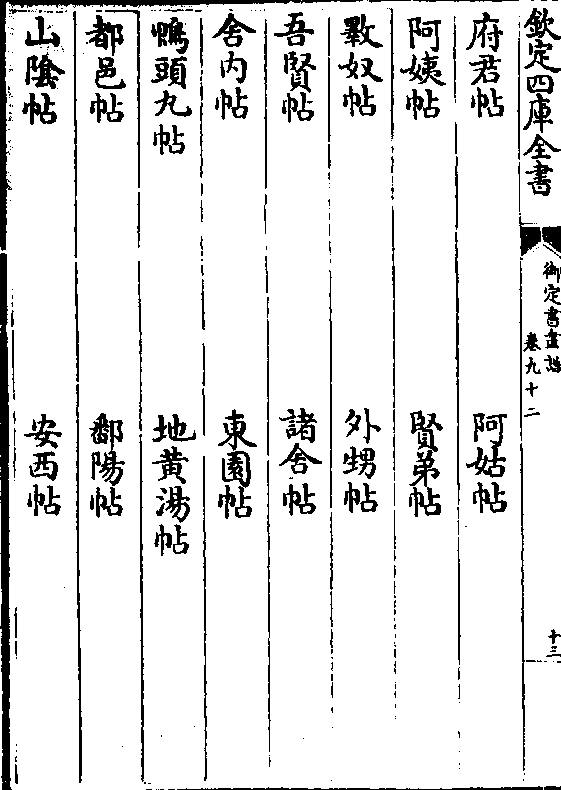 欽定四庫全書
御定書畫譜
卷九十二
十三
府君帖 阿姑帖
阿姨帖 賢弟帖
斁奴帖 外甥帖
吾賢帖 諸舍帖
舍內帖 東園帖
鴨頭九帖 地黄湯帖
都邑帖 鄱陽帖
山隂帖 安西帖